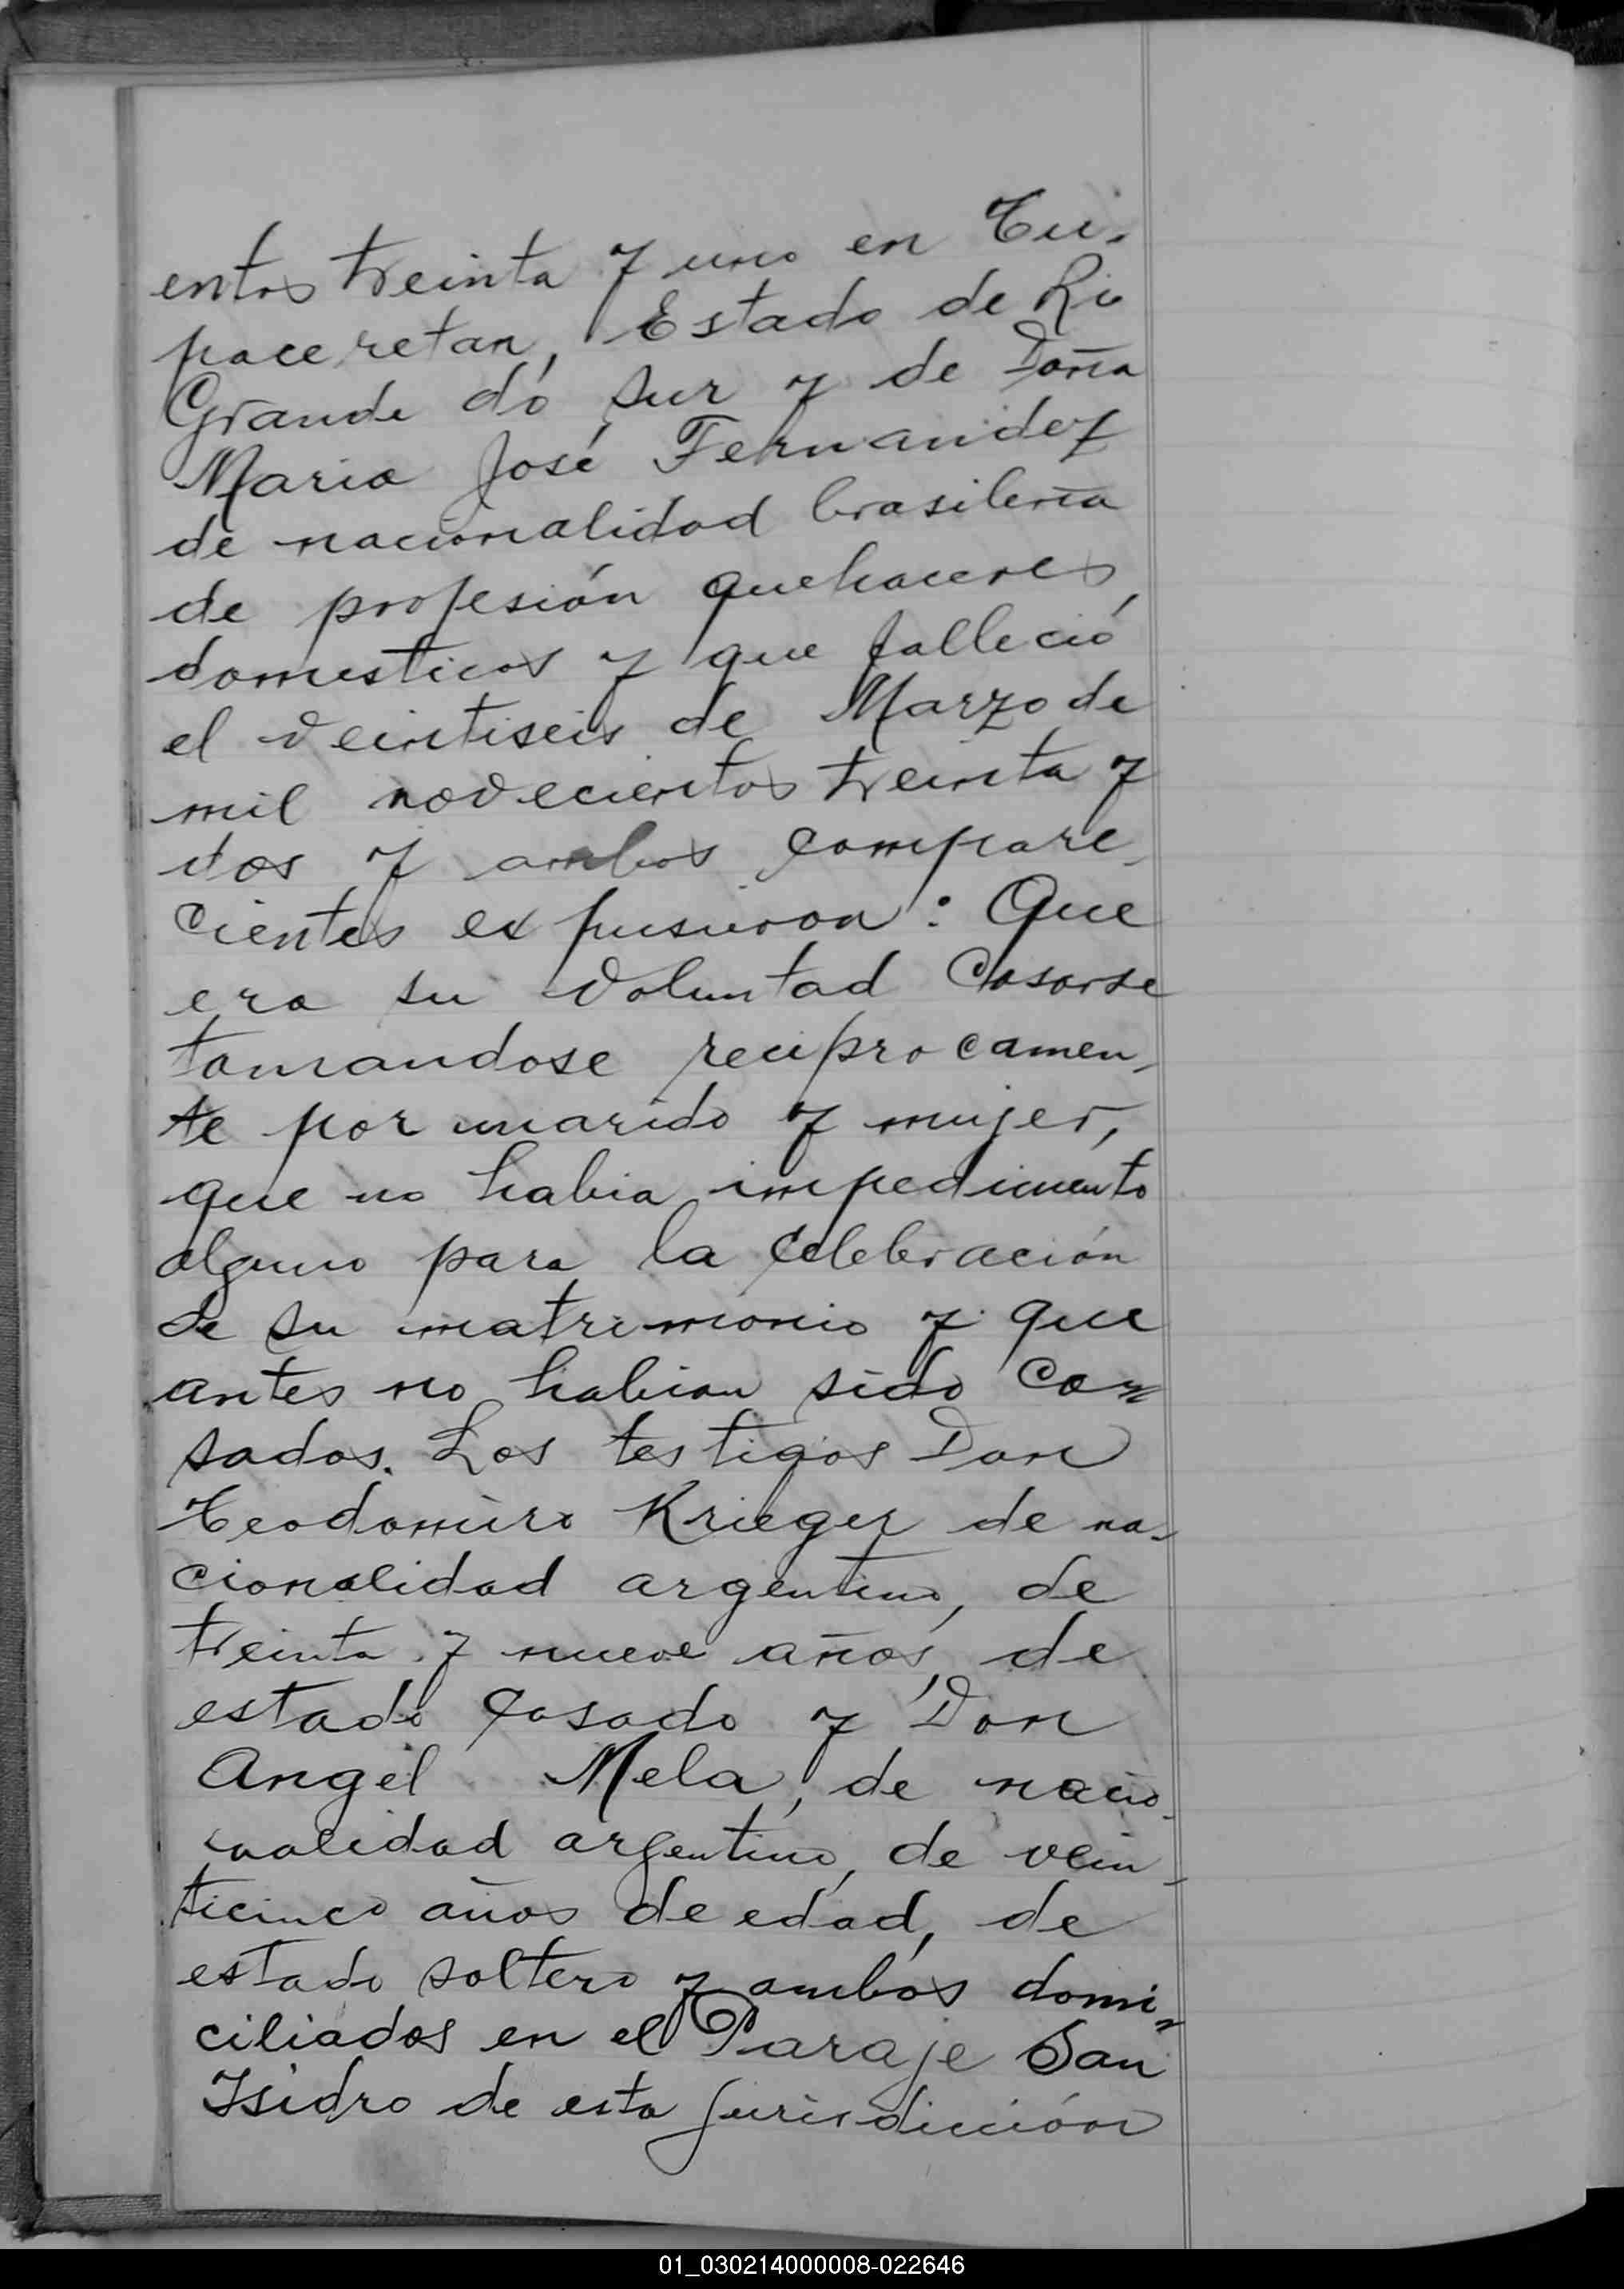 entos treinta y uno en Tu-
paceretan, Estado de Rio
Grande dó Sur y de Doña
Maria José Fernandez
de nacionalidad brasileña
de profesión quehaceres
domesticos y que falleció
el veintiseis de Marzo de
mil novecientos treinta y
dos y ambos compare-
cientes expusieron: Que
era su voluntad casarse
tomandose reciprocamen-
te por marido y mujer,
que no habia impedimento
alguno para la celebración
de su matrimonio y que
antes no habian sido ca=
sados. Los testigos Don
Teodomiro Krieger de na-
cionalidad argentino, de
treinta y nueve años, de
estado casado y Don
Angel Mela, de nacio-
nalidad argentino, de vein-
ticinco años de edad, de
estado soltero y ambos domi=
ciliados en el Paraje San
Isidro de esta jurisdicción
01_030214000008-022646